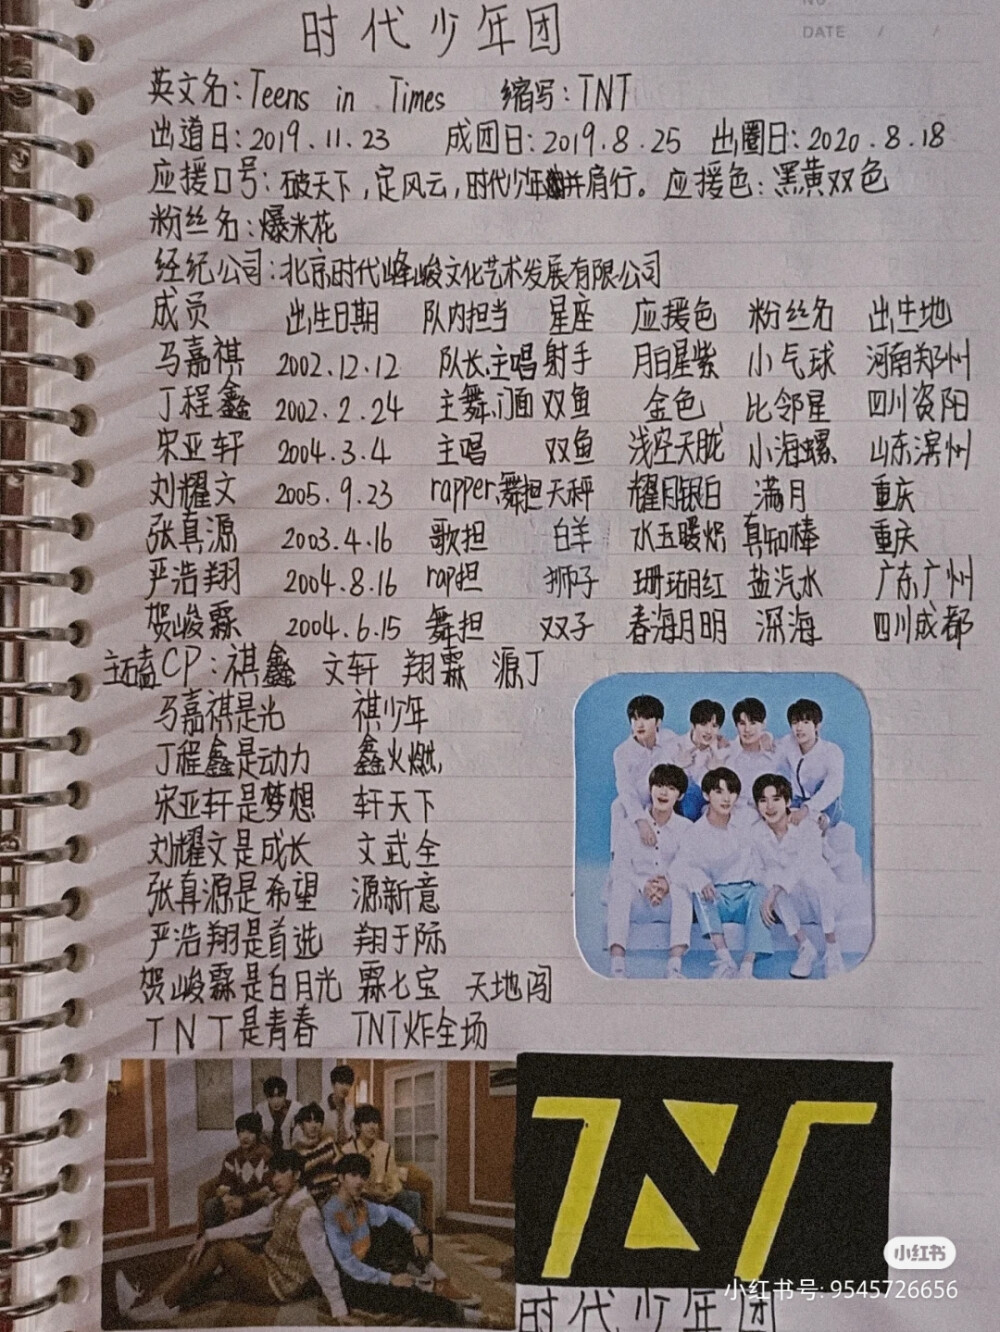 NO
DATE / /
时代少年团
英文名:Teens in Times 缩写:TNT
出道日:2019.11.23 成团日:2019.8.25 出圈日:2020.8.18
应援口号:破天下,定风云,时代少年并肩行。应援色:黑黄双色
粉丝名:爆米花
经纪公司:北京时代峰峻文化艺术发展有限公司
成员 出生日期 队内担当 星座 应援色 粉丝名 出生地
马嘉祺 2002.12.12 队长.主唱 射手 月白星紫 小气球 河南郑州
丁程鑫 2002.2.24 主舞.门面 双鱼 金色 比邻星 四川资阳
宋亚轩 2004.3.4 主唱 双鱼 浅空天胧 小海螺 山东滨州
刘耀文 2005.9.23 rapper.舞担 天秤 耀月银白 满月 重庆
张真源 2003.4.16 歌担 白羊 水玉暖炽 真知棒 重庆
严浩翔 2004.8.16 rap担 狮子 珊瑚月红 盐汽水 广东广州
贺峻霖 2004.6.15 舞担 双子 春海月明 深海 四川成都
主磕CP:祺鑫 文轩 翔霖 源丁
马嘉祺是光 祺少年
丁程鑫是动力 鑫火燃
宋亚轩是梦想 轩天下
刘耀文是成长 文武全
张真源是希望 源新意
严浩翔是首选 翔于际
贺峻霖是白月光 霖七宝 天地闯
TNT是青春 TNT炸全场
TNT
小红书
小红书号:9545726656
时代少年团